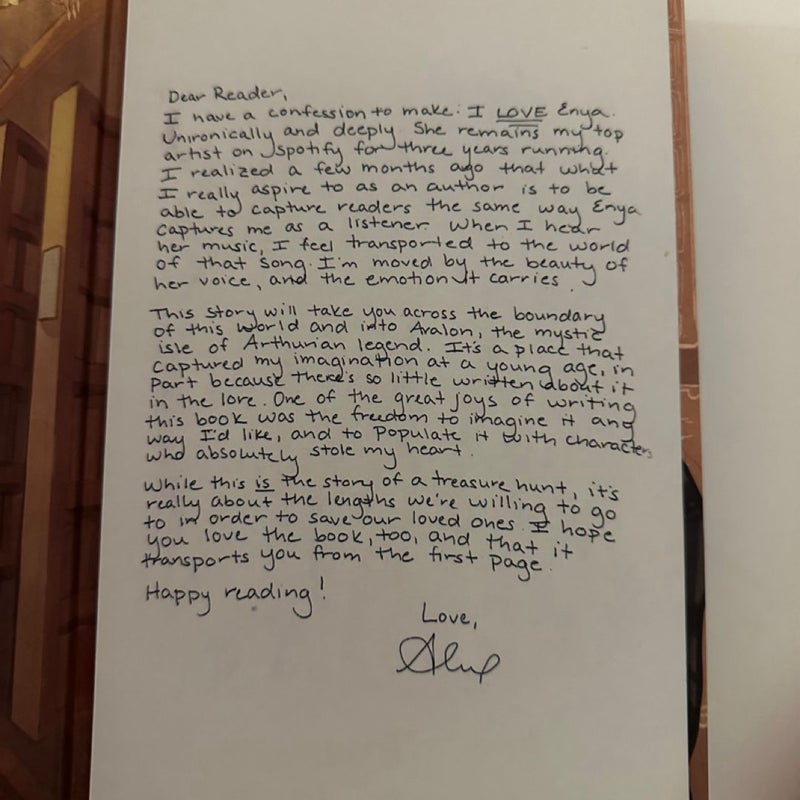 Dear Reader,
I have a confession to make: I LOVE Enya.
Unironically and deeply. She remains my top
artist on Spotify for three years running.
I realized a few months ago that what
I really aspire to as an author is to be
able to capture readers the same way Enya
captures me as a listener. When I hear
her music, I feel transported to the world
of that song. I'm moved by the beauty of
her voice, and the emotion it carries.
This story will take you across the boundary
of this world and into Avalon, the mystic
isle of Arthurian legend. It's a place that
captured my imagination at a young age, in
part because there's so little written about it
in the lore. One of the great joys of writing
this book was the freedom to imagine it any
way I'd like, and to populate it with characters
who absolutely stole my heart.
While this is the story of a treasure hunt, it's
really about the lengths we're willing to go
to in order to save our loved ones. I hope
you love the book, too, and that it
transports you from the first page.
Happy reading!
Love,
Alex